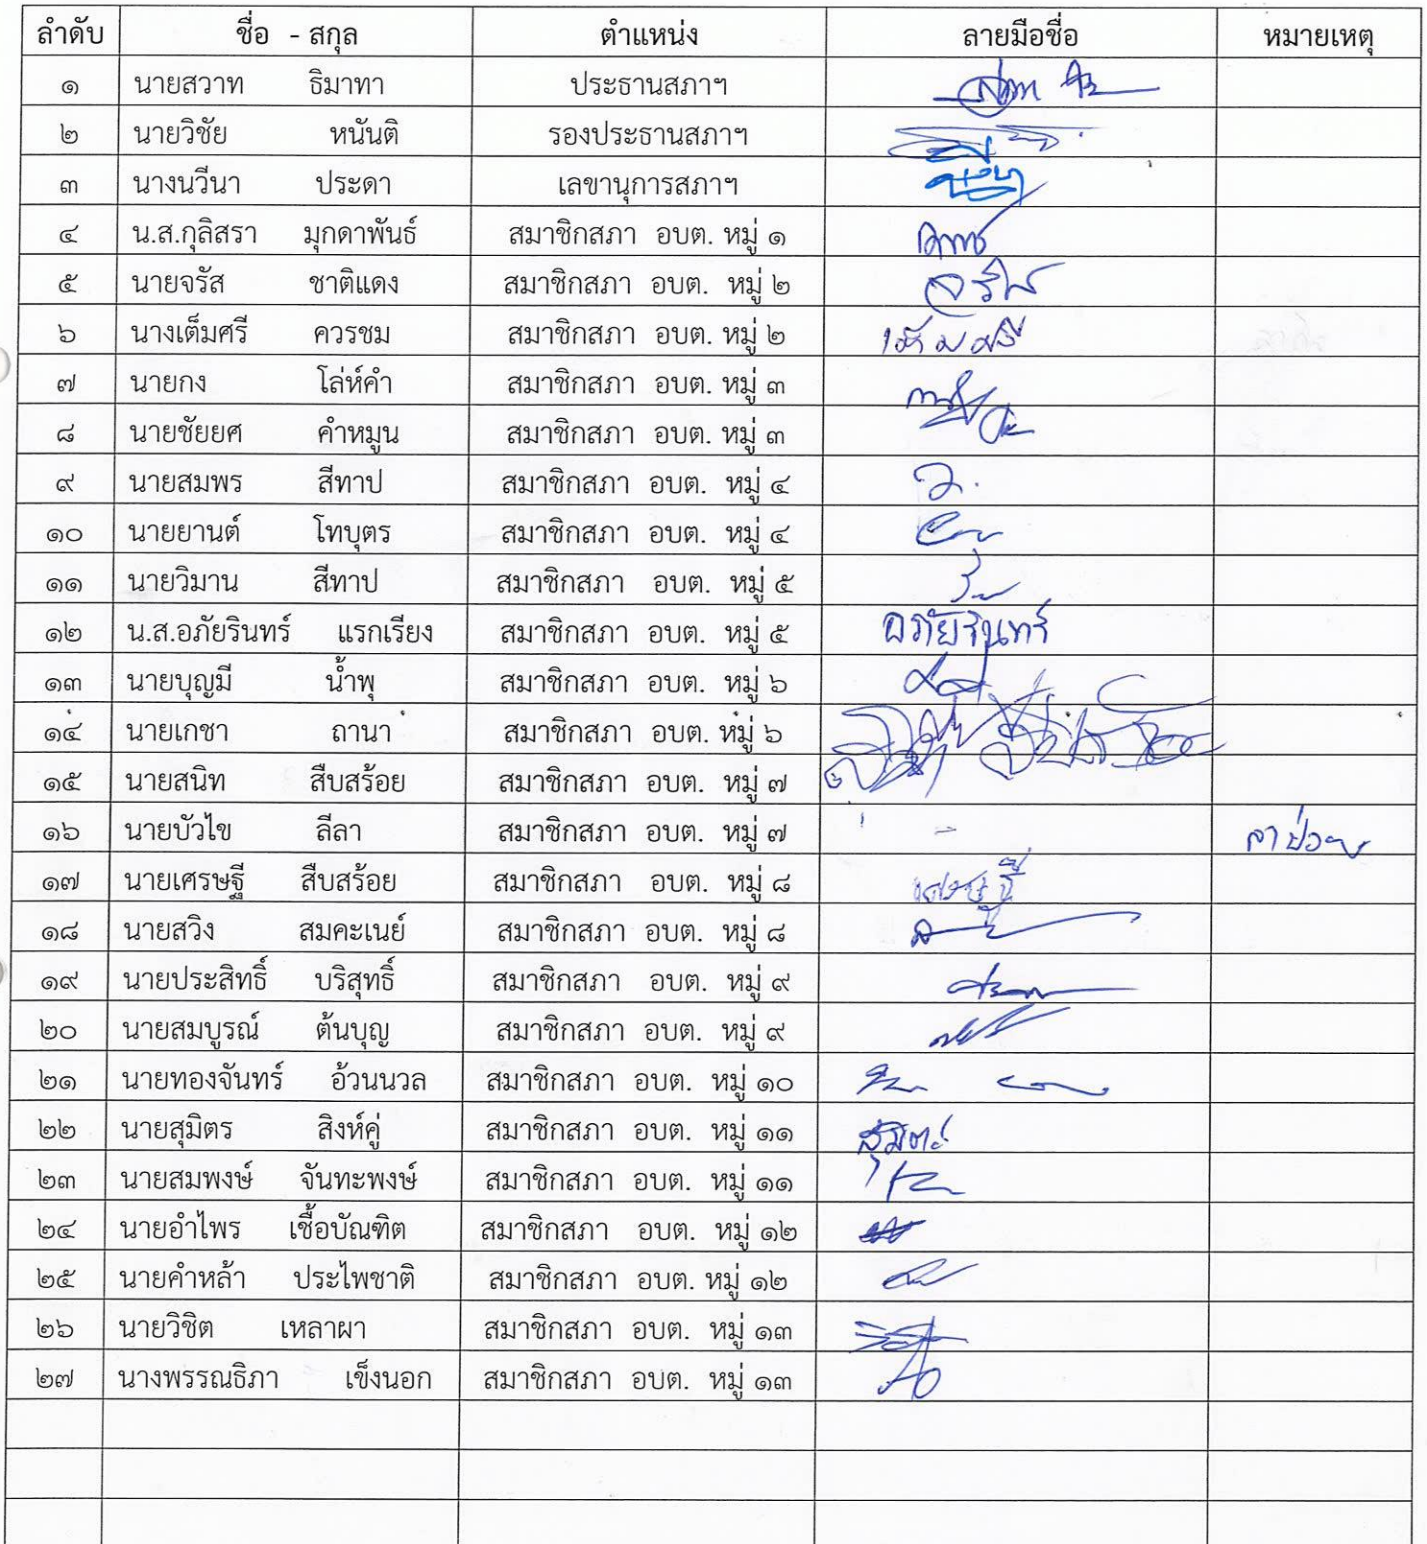 ลำดับ ชื่อ - สกุล ตำแหน่ง ลายมือชื่อ หมายเหตุ
๑ นายสวาท ธิมาทา ประธานสภาฯ
๒ นายวิชัย หนันติ รองประธานสภาฯ
๓ นางนวีนา ประดา เลขานุการสภาฯ
๔ น.ส.กุลิสรา มุกดาพันธ์ สมาชิกสภา อบต. หมู่ ๑
๕ นายจรัส ชาติแดง สมาชิกสภา อบต. หมู่ ๒ จรัส
๖ นางเต็มศรี ควรชม สมาชิกสภา อบต. หมู่ ๒ เต็มศรี
๗ นายกง โล่ห์คำ สมาชิกสภา อบต. หมู่ ๓
๘ นายชัยยศ คำหมูน สมาชิกสภา อบต. หมู่ ๓
๙ นายสมพร สีทาป สมาชิกสภา อบต. หมู่ ๔
๑๐ นายยานต์ โทบุตร สมาชิกสภา อบต. หมู่ ๔
๑๑ นายวิมาน สีทาป สมาชิกสภา อบต. หมู่ ๕
๑๒ น.ส.อภัยรินทร์ แรกเรียง สมาชิกสภา อบต. หมู่ ๕ อภัยรินทร์
๑๓ นายบุญมี น้ำพุ สมาชิกสภา อบต. หมู่ ๖
๑๔ นายเกชา ถานา สมาชิกสภา อบต. หมู่ ๖
๑๕ นายสนิท สืบสร้อย สมาชิกสภา อบต. หมู่ ๗
๑๖ นายบัวไข ลีลา สมาชิกสภา อบต. หมู่ ๗ - ลาป่วย
๑๗ นายเศรษฐี สืบสร้อย สมาชิกสภา อบต. หมู่ ๘ เศรษฐี
๑๘ นายสวิง สมคะเนย์ สมาชิกสภา อบต. หมู่ ๘
๑๙ นายประสิทธิ์ บริสุทธิ์ สมาชิกสภา อบต. หมู่ ๙
๒๐ นายสมบูรณ์ ต้นบุญ สมาชิกสภา อบต. หมู่ ๙
๒๑ นายทองจันทร์ อ้วนนวล สมาชิกสภา อบต. หมู่ ๑๐
๒๒ นายสุมิตร สิงห์คู่ สมาชิกสภา อบต. หมู่ ๑๑
๒๓ นายสมพงษ์ จันทะพงษ์ สมาชิกสภา อบต. หมู่ ๑๑
๒๔ นายอำไพร เชื้อบัณฑิต สมาชิกสภา อบต. หมู่ ๑๒
๒๕ นายคำหล้า ประไพชาติ สมาชิกสภา อบต. หมู่ ๑๒
๒๖ นายวิชิต เหลาผา สมาชิกสภา อบต. หมู่ ๑๓
๒๗ นางพรรณธิภา เข็งนอก สมาชิกสภา อบต. หมู่ ๑๓